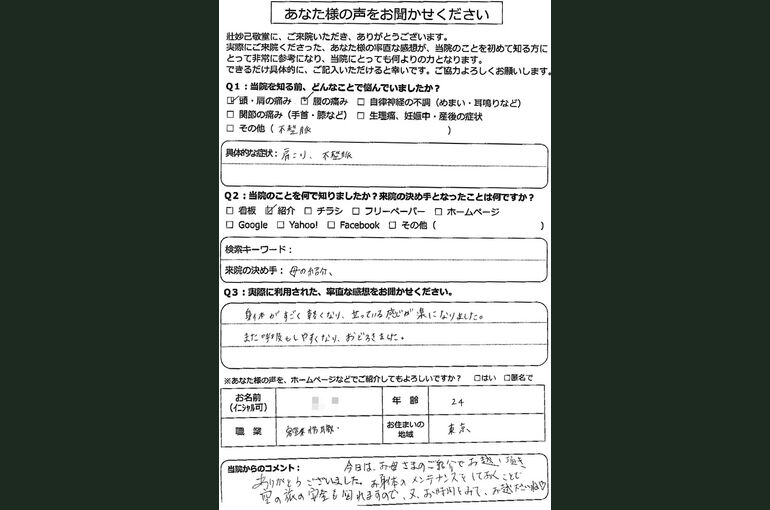 あなた様の声をお聞かせください
壯妙己敬堂に、ご来院いただき、ありがとうございます。
実際にご来院くださった、あなた様の率直な感想が、当院のことを初めて知る方に
とって非常に参考になり、当院にとっても何よりの力となります。
できるだけ具体的に、ご記入いただけると幸いです。ご協力よろしくお願いします。
Q1：当院を知る前、どんなことで悩んでいましたか？
☑ 頭・肩の痛み ☑ 腰の痛み □ 自律神経の不調（めまい・耳鳴りなど）
□ 関節の痛み（手首・膝など） □ 生理痛、妊娠中・産後の症状
□ その他（ 不整脈 ）
具体的な症状： 肩こり、不整脈
Q2：当院のことを何で知りましたか？来院の決め手となったことは何ですか？
□ 看板 ☑ 紹介 □ チラシ □ フリーペーパー □ ホームページ
□ Google □ Yahoo! □ Facebook □ その他（ ）
検索キーワード：
来院の決め手： 母の紹介、
Q3：実際に利用された、率直な感想をお聞かせください。
身体がすごく軽くなり、立っている感じが楽になりました。
また呼吸もしやすくなり、おどろきました。
※あなた様の声を、ホームページなどでご紹介してもよろしいですか？ □はい □匿名で
お名前 年 齢 24
（イニシャル可）
職 業 客室乗務職 お住まいの 東京
地域
当院からのコメント： 今日は、お母さまのご紹介でお越し頂き
ありがとうございました。お身体のメンテナンスをしておくことで
空の旅の安全も図れますので、又、お時間をみて、お越しくださいね